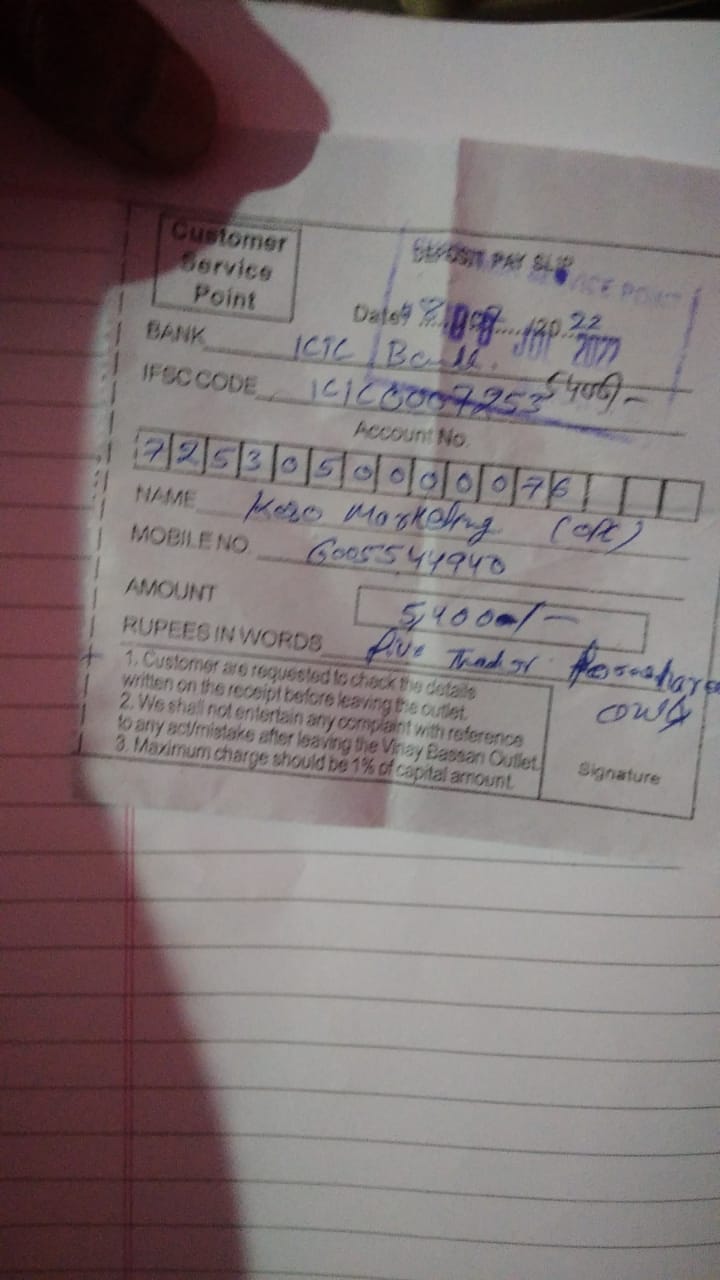 Customer
Service
Point
DEPOSIT PAY SLIP
SERVICE POINT
Date 8/07/2022
08 JUL 2022
BANK ICIC Bank.
5400/-
IFSC CODE ICIC0007253
Account No.
7253050000076
NAME Kero Marketing (OPC)
MOBILE NO. 6005544940
AMOUNT 5,400=/-
RUPEES IN WORDS five
only
1. Customer are requested to check the details
written on the receipt before leaving the outlet.
2. We shall not entertain any complaint with reference
to any act/mistake after leaving the Vinay Bassan Outlet.
3. Maximum charge should be 1% of capital amount.
Signature